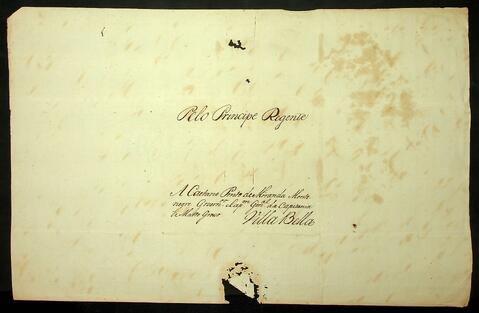 Pelo Principe Regente
A Caetano Pinto de Miranda Monte
negro Govern.or e Cap.am Gen.al da Capitania
de Matto Groso Villa Bella